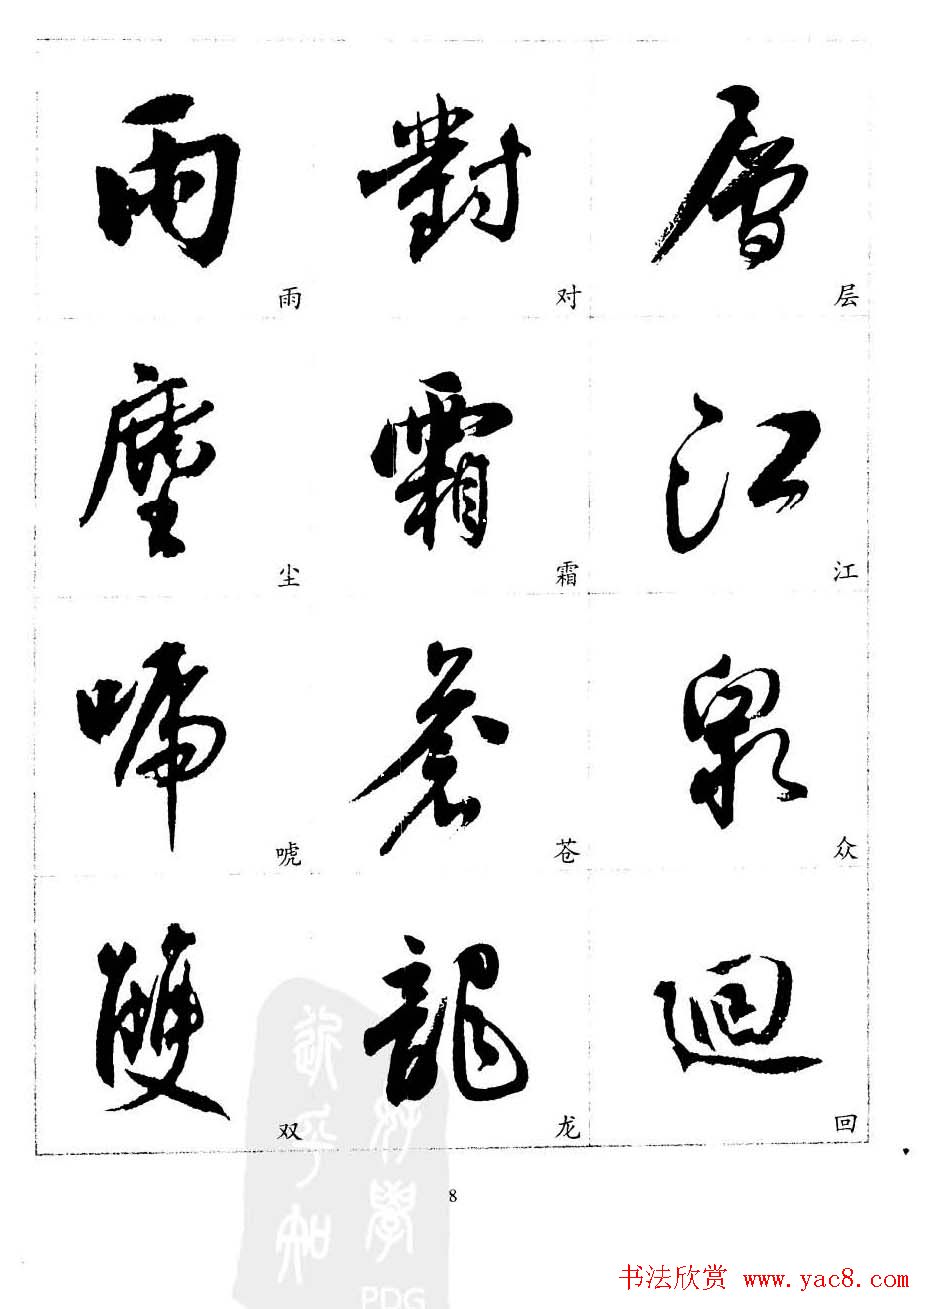 雨 對 層
雨 对 层
塵 霜 江
尘 霜 江
蒼 泉
唬 苍 众
雙 龍 迴
双 龙 回
8
PDG
书法欣赏 www.yac8.com